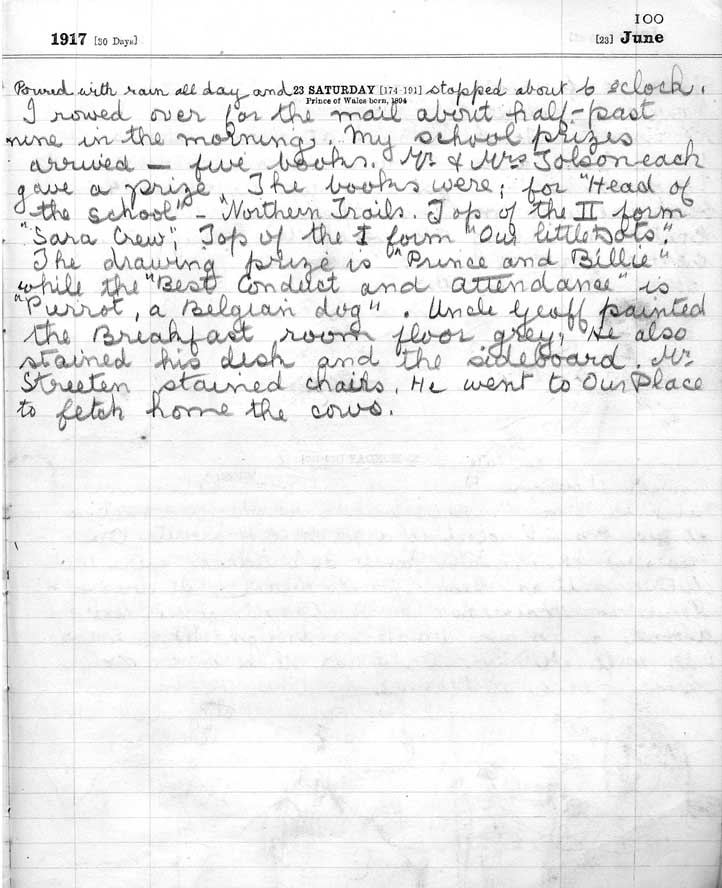 100
1917 [30 Days] [23] June
Poured with rain all day and 23 SATURDAY [174-191] stopped about 6 oclock.
Prince of Wales born, 1894
I rowed over for the mail about half-past
nine in the morning. My school prizes
arrived – five books. Mr & Mrs Tolson each
gave a prize The books were; for "Head of
the school" – "Northern Trails. Top of the II form
"Sara Crew"; Top of the I form "Our little Dots".
The drawing prize is "Prince and Billie"
while the "Best Conduct and attendance" is
"Pierrot, a Belgian dog". Uncle Geoff painted
the Breakfast room floor grey; He also
stained his desk and the sideboard. Mr
Streeten stained chairs. He went to Our Place
to fetch home the cows.